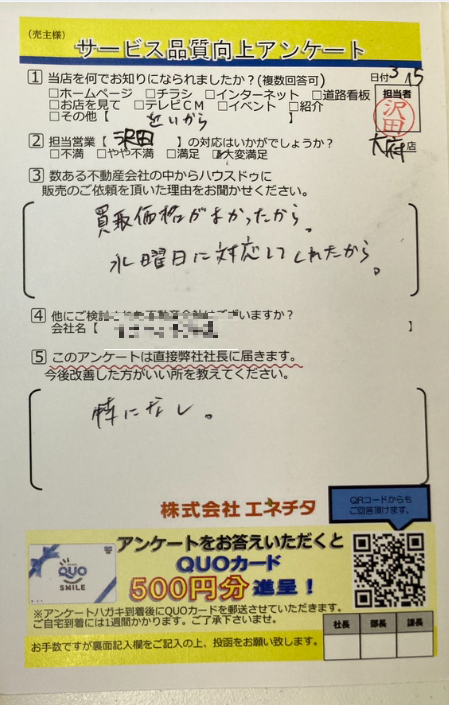 (売主様)
サービス品質向上アンケート
1 当店を何でお知りになられましたか?(複数回答可)
日付 3/15
□ホームページ □チラシ □インターネット □道路看板
□お店を見て □テレビCM □イベント □紹介
□その他【 近いから 】
担当者
沢田
大府店
2 担当営業【 沢田 】の対応はいかがでしょうか?
□不満 □やや不満 □満足 ☑大変満足
3 数ある不動産会社の中からハウスドゥに
販売のご依頼を頂いた理由をお聞かせください。
買取価格がよかったから。
水曜日に対応してくれたから。
4 他にご検討された不動産会社はございますか?
会社名【 】
5 このアンケートは直接弊社社長に届きます。
今後改善した方がいい所を教えてください。
特になし。
株式会社 エネチタ
QRコードからも
ご回答頂けます。
アンケートをお答えいただくと
QUOカード
500円分 進呈!
QUO
SMILE
※アンケートハガキ到着後にQUOカードを郵送させていただきます。
ご自宅到着には1週間かかります。ご了承下さいませ。
お手数ですが裏面記入欄をご記入の上、投函をお願い致します。
社長 部長 課長